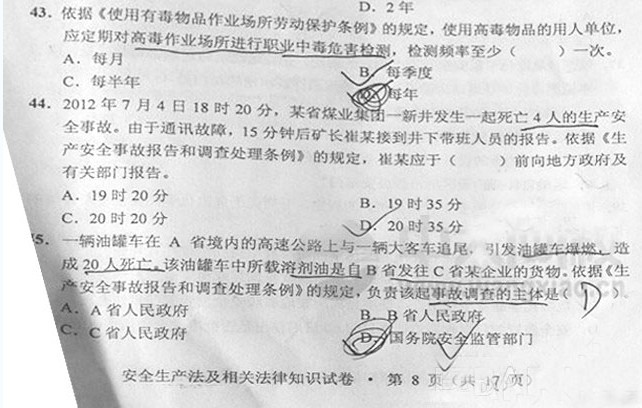 D. 2 年
43. 依据《使用有毒物品作业场所劳动保护条例》的规定，使用高毒物品的用人单位，
应定期对高毒作业场所进行职业中毒危害检测，检测频率至少（　　）一次。
A. 每月　B. 每季度
C. 每半年　D. 每年
44. 2012 年 7 月 4 日 18 时 20 分，某省煤业集团一新井发生一起死亡 4 人的生产安
全事故。由于通讯故障，15 分钟后矿长崔某接到井下带班人员的报告。依据《生
产安全事故报告和调查处理条例》的规定，崔某应于（　　）前向地方政府及
有关部门报告。
A. 19 时 20 分　B. 19 时 35 分
C. 20 时 20 分　D. 20 时 35 分
45. 一辆油罐车在 A 省境内的高速公路上与一辆大客车追尾，引发油罐车爆燃，造
成 20 人死亡。该油罐车中所载溶剂油是自 B 省发往 C 省某企业的货物。依据《生
产安全事故报告和调查处理条例》的规定，负责该起事故调查的主体是（ D ）。
A. A 省人民政府　B. B 省人民政府
C. C 省人民政府　D. 国务院安全监管部门
安全生产法及相关法律知识试卷 · 第 8 页（共 17 页）